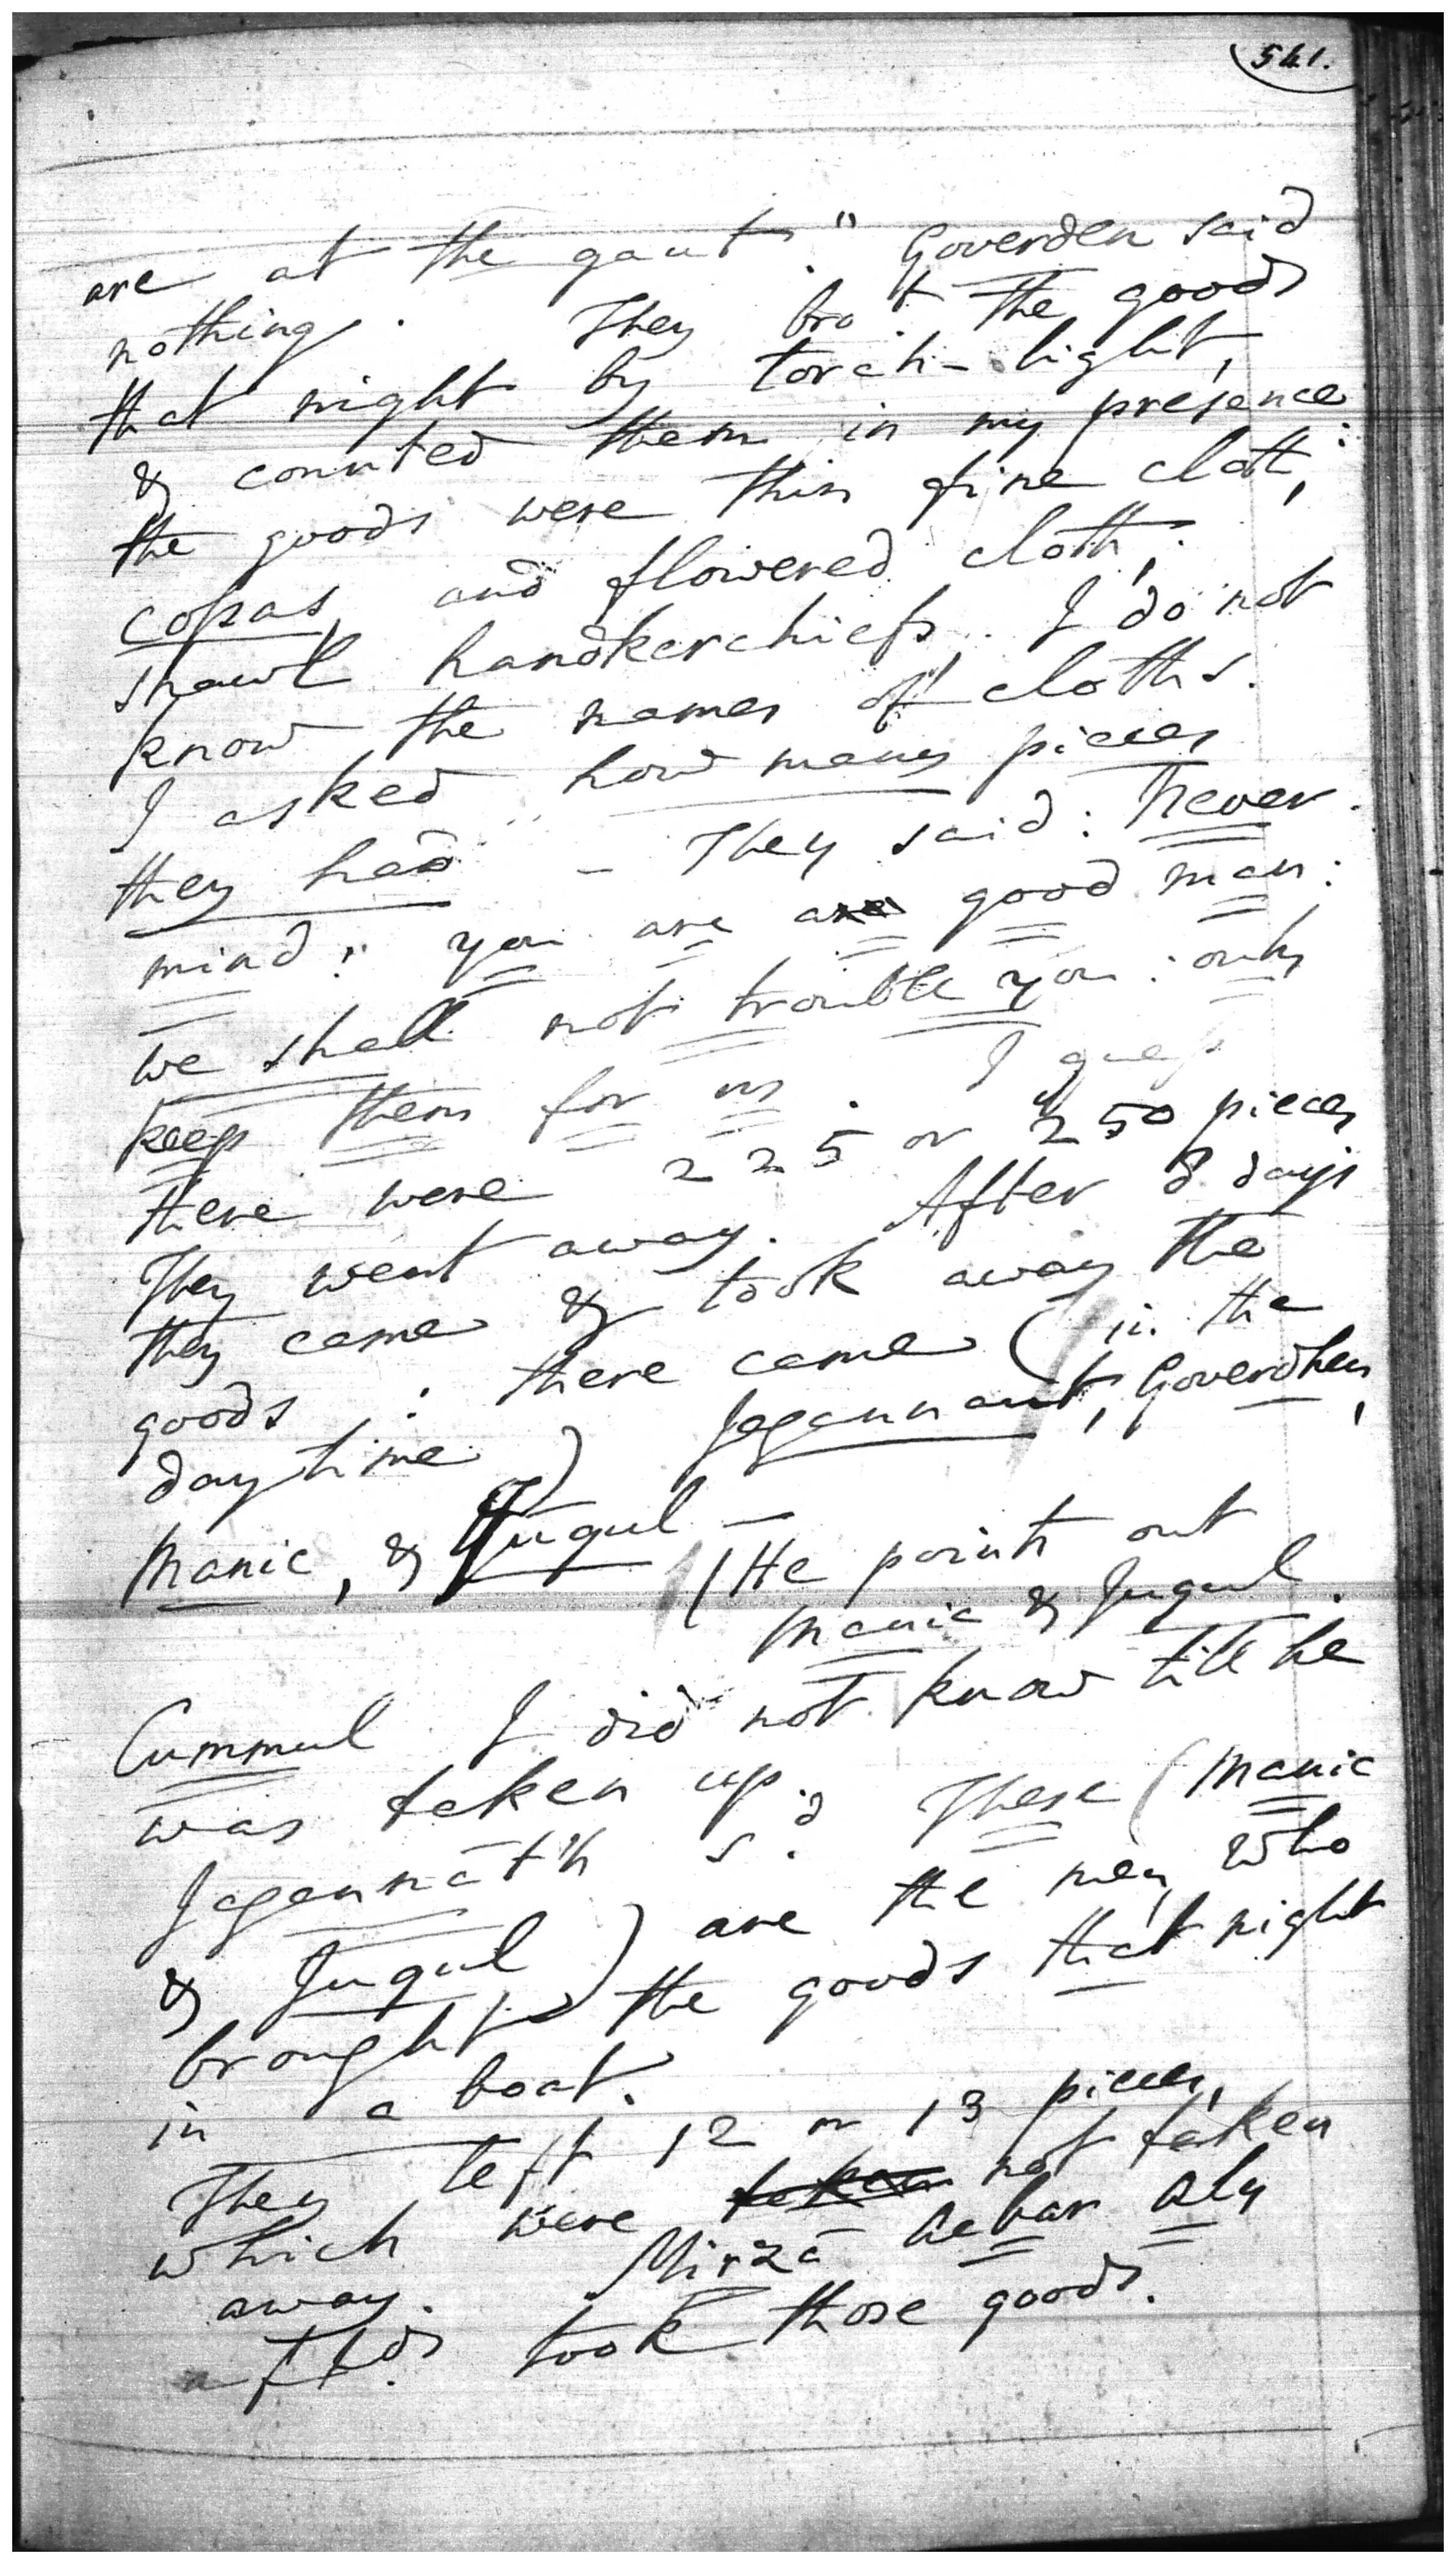 541.
are at the gaut." Goverden said
nothing. They bro.t the goods
that night by torch-light,
& counted them in my presence:
the goods were thin fine cloth,
copas, and flowered cloth,
shawl handkerchiefs. I do not
know the names of cloths.
I asked how many pieces
they had - They said: Never
mind: you are a good man:
we shall not trouble you: only
keep them for us. I guess
there were 225 or 250 pieces
They went away. After 8 days
they came & took away the
goods: there came (in the
day time) Jagannaut, Goverdhen,
Manic, & Jugul -
(He points out
Manic & Jugul.
Cummul I did not know till he
was taken up.
Jagannāth s.d These (Manic
& Jugul) are the men, who
brought the goods that night
in a boat.
They left 12 or 13 pieces,
which were taken not taken
away. Mirzā Acbar Aly
aft.ds took those goods.